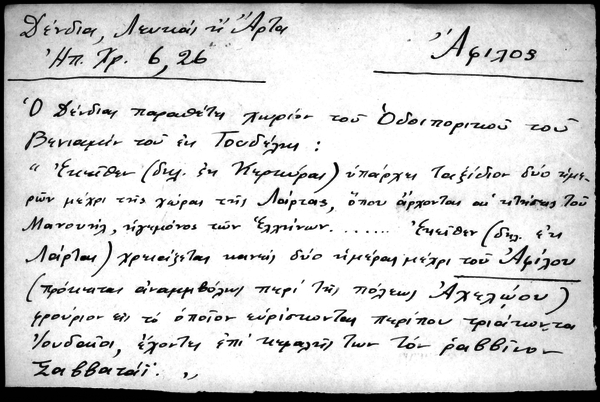 Δένδια, Λευκὰς ἢ Ἄρτα
Ἠπ. Χρ. 6, 26
Ἄφιλος
Ὁ Δένδιας παραθέτει χωρίον τοῦ Ὁδοιπορικοῦ τοῦ
Βενιαμὶν τοῦ ἐκ Τουδέλης :
" Ἐκεῖθεν (δηλ. ἐκ Κερκύρας) ὑπάρχει ταξίδιον δύο ἡμε-
ρῶν μέχρι τῆς χώρας τῆς Λάρτας, ὅπου ἄρχονται αἱ κτήσεις τοῦ
Μανουήλ, ἡγεμόνος τῶν Ἑλλήνων. ..... Ἐκεῖθεν (δηλ. ἐκ
Λάρτας) χρειάζεται κανεὶς δύο ἡμέρας μέχρι τοῦ Ἀφίλου
(πρόκειται ἀναμφιβόλως περὶ τῆς πόλεως Ἀχελῴου)
φρούριον εἰς τὸ ὁποῖον εὑρίσκονται περίπου τριάκοντα
Ἰουδαῖοι, ἔχοντες ἐπὶ κεφαλῆς των τὸν ραββῖνον
Σαββαταΐ. "